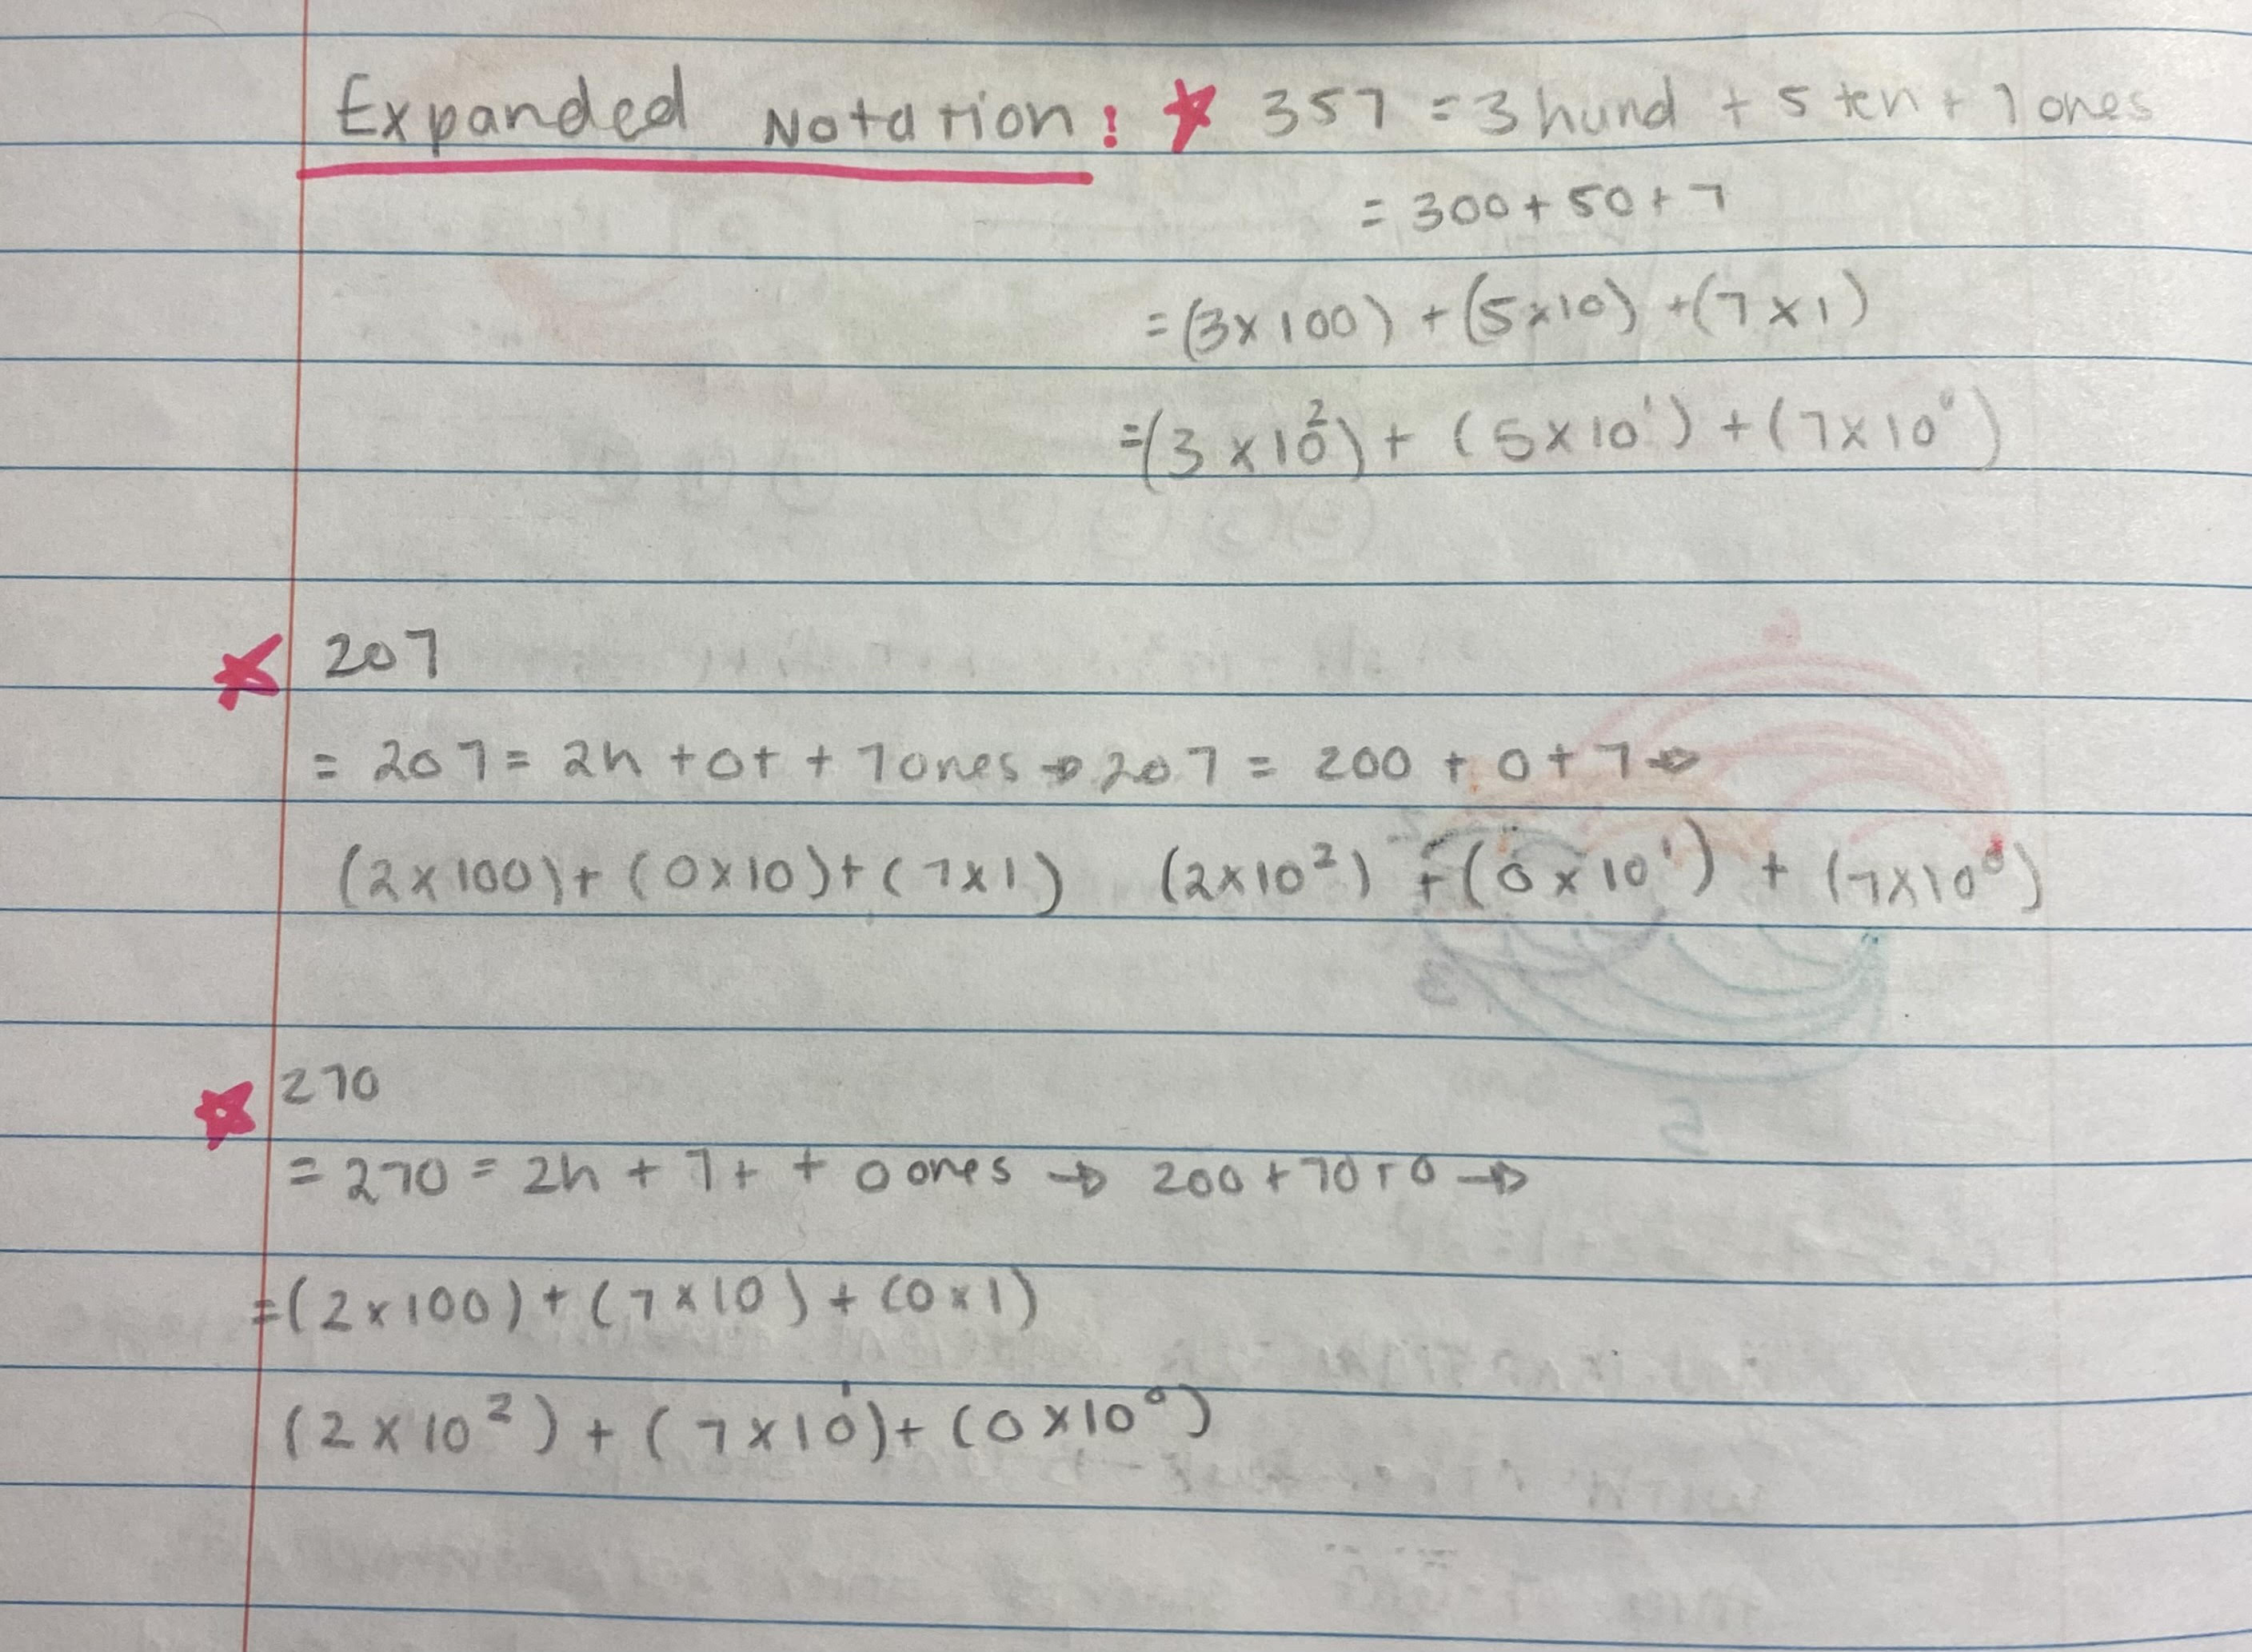 Expanded Notation: 357 = 3 hund + 5 ten + 7 ones
= 300 + 50 + 7
= (3 x 100) + (5 x 10) + (7 x 1)
= (3 x 10²) + (5 x 10¹) + (7 x 10⁰)
207
= 207 = 2h + 0t + 7 ones → 207 = 200 + 0 + 7 →
(2 x 100) + (0 x 10) + (7 x 1) (2 x 10²) + (0 x 10¹) + (7 x 10⁰)
270
= 270 = 2h + 7t + 0 ones → 200 + 70 + 0 →
= (2 x 100) + (7 x 10) + (0 x 1)
(2 x 10²) + (7 x 10¹) + (0 x 10⁰)